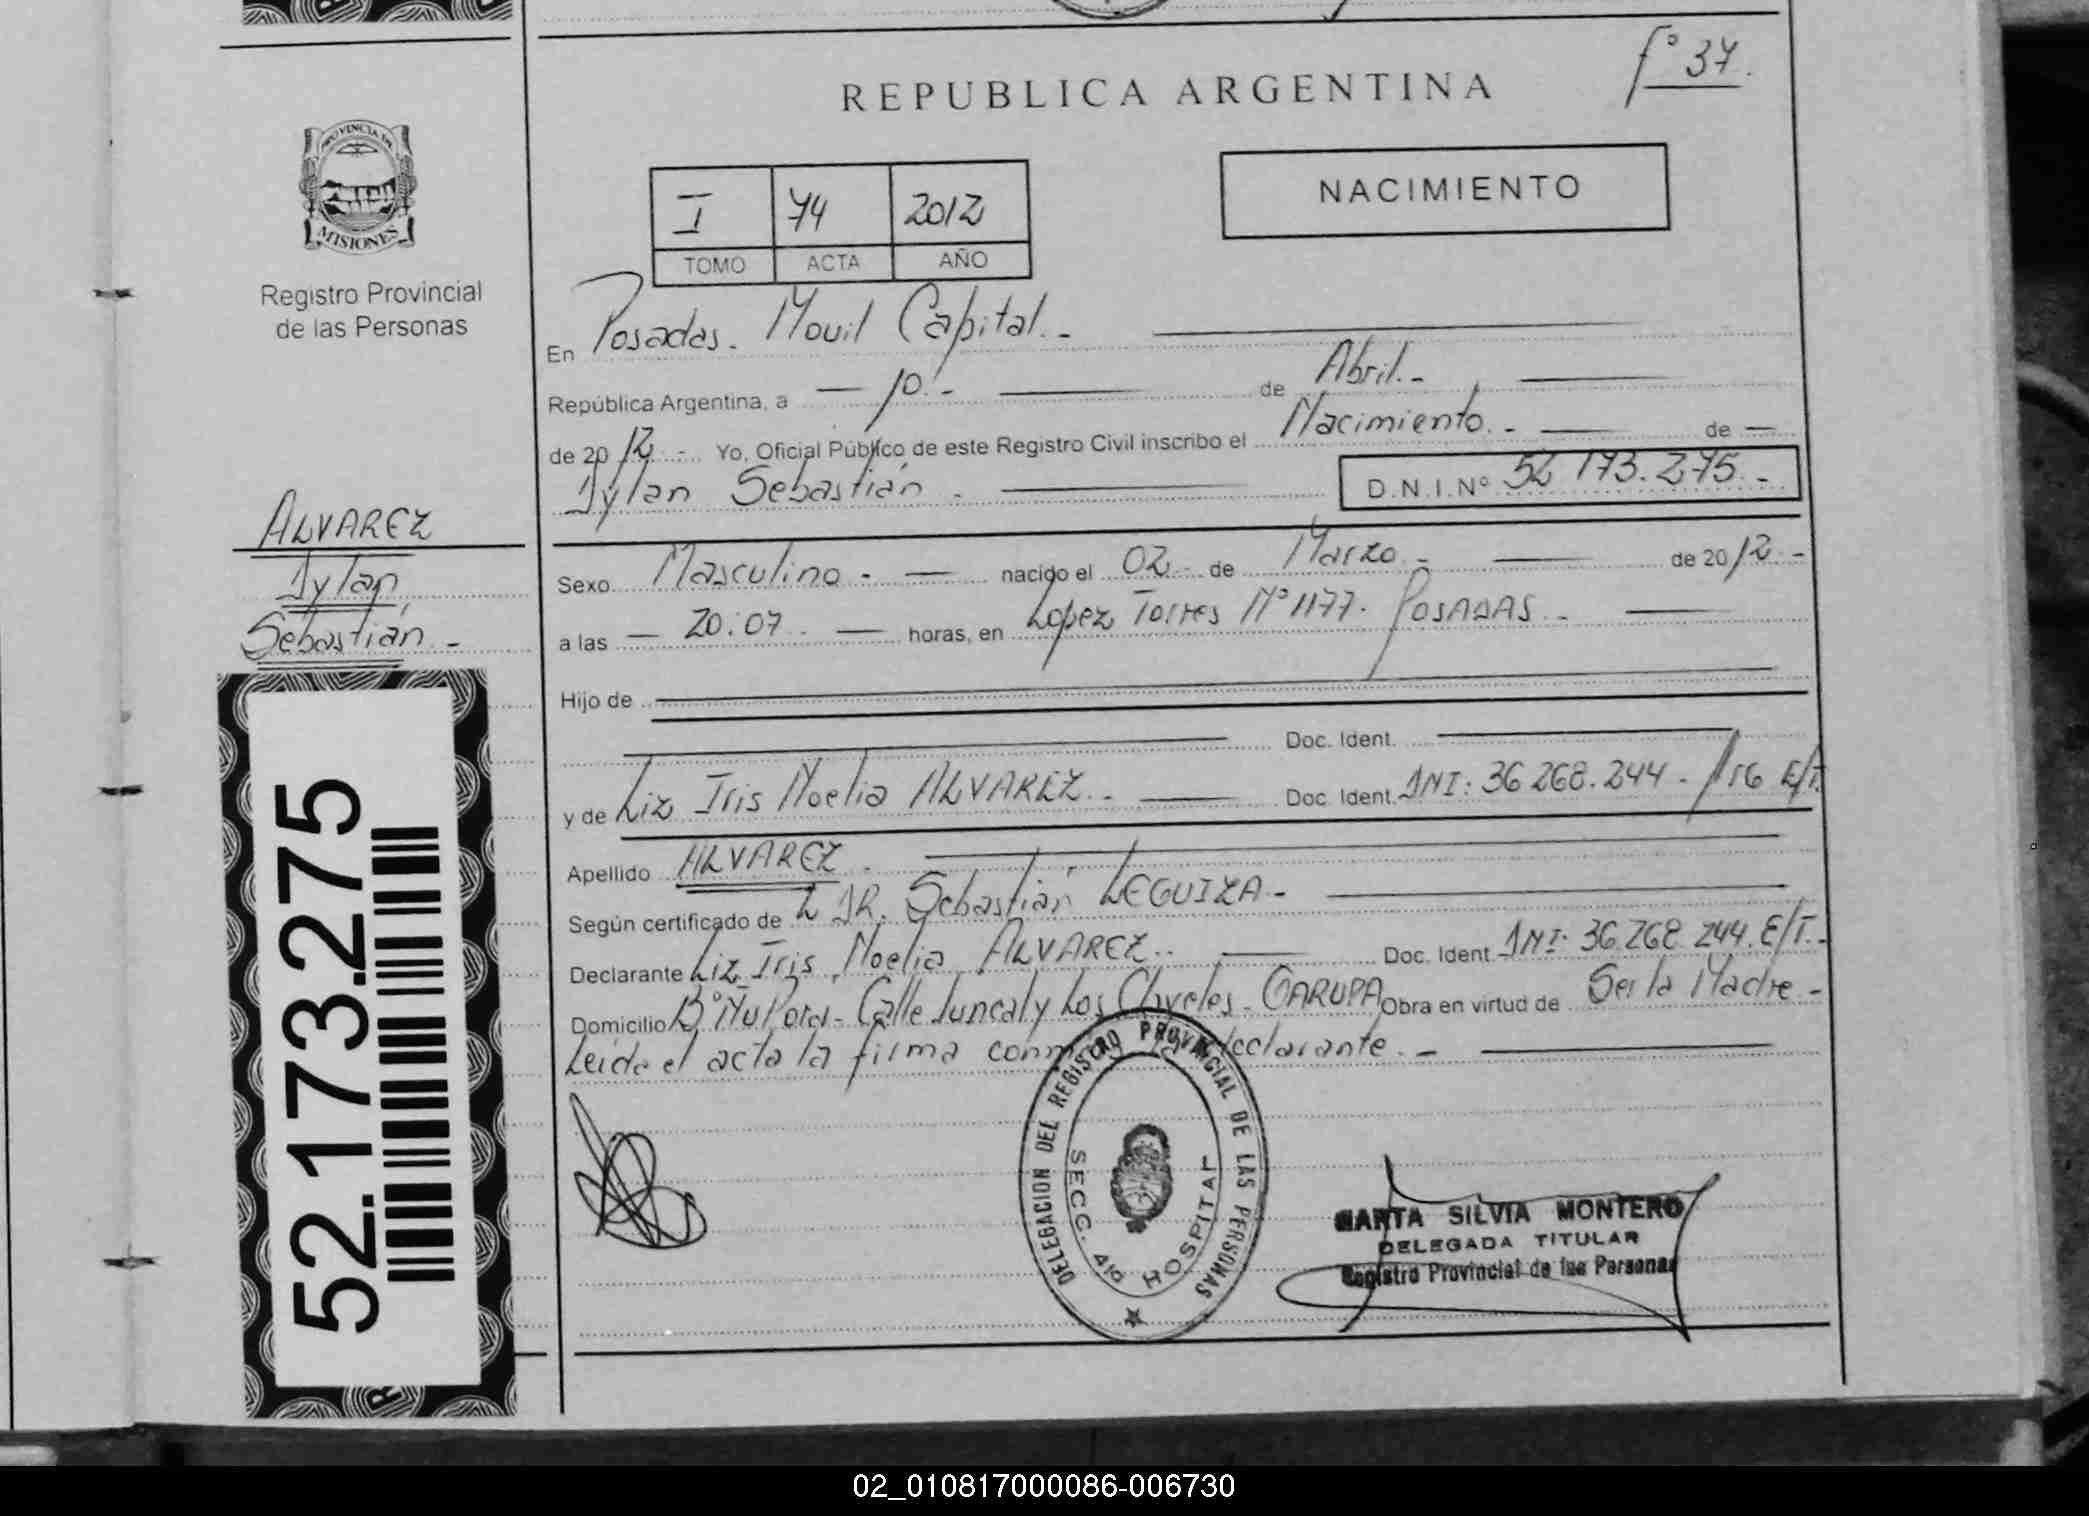 f° 37.
REPUBLICA ARGENTINA
PROVINCIA DE
MISIONES
Registro Provincial
de las Personas
NACIMIENTO
I 74 2012
TOMO ACTA AÑO
En Posadas. Movil Capital.-
República Argentina, a 10.- de Abril.-
de 2012.- Yo, Oficial Público de este Registro Civil inscribo el Nacimiento.- de
Dylan Sebastián.- D.N.I.Nº 52 173.275.-
ALVAREZ
Dylan
Sebastián.-
Sexo Masculino.- nacido el 02.- de Marzo.- de 2012.-
a las 20:07 horas, en Lopez Torres Nº 1177. POSADAS.-
Hijo de
Doc. Ident.
y de Liz Iris Noelia ALVAREZ.- Doc. Ident. DNI: 36 268.244.- E/T.
Apellido ALVAREZ.
Según certificado de DR. Sebastián LEGUIZA-
Declarante Liz Iris Noelia ALVAREZ.. Doc. Ident. DNI: 36.268.244. E/T.-
Domicilio Bº Ñu Porá- Calle Juncal y Los Claveles- GARUPA Obra en virtud de Ser la Madre-
Leida el acta la firma declarante.-
52.173.275
DELEGACION DEL REGISTRO PROVINCIAL DE LAS PERSONAS
SECC. 4ta HOSPITAL
MARTA SILVIA MONTERO
DELEGADA TITULAR
Registro Provincial de las Personas
02_010817000086-006730